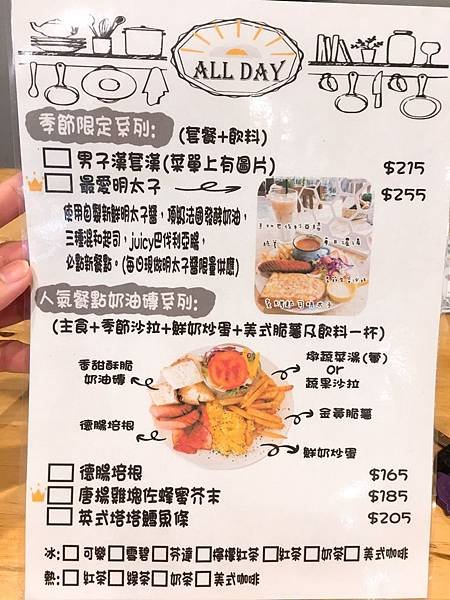 ALL DAY
季節限定系列: (套餐+飲料)
男子漢套漢(菜單上有圖片) $215
最愛明太子 $255
使用自製新鮮明太子醬，頂奶法國發酵奶油，
三種溫和起司，juicy巴伐利亞腸，
必點新餐點。(每日現做明太子醬限量供應)
人氣餐點奶油磚系列:
(主食+季節沙拉+鮮奶炒蛋+美式脆薯及飲料一杯)
香甜酥脆
奶油磚
燉蔬菜湯(暈)
or
蔬果沙拉
金黃脆薯
德腸培根
鮮奶炒蛋
德腸培根 $165
唐揚雞塊佐蜂蜜芥末 $185
英式塔塔鱈魚條 $205
冰: 可樂 雪碧 芬達 檸檬紅茶 紅茶 奶茶 美式咖啡
熱: 紅茶 綠茶 奶茶 美式咖啡